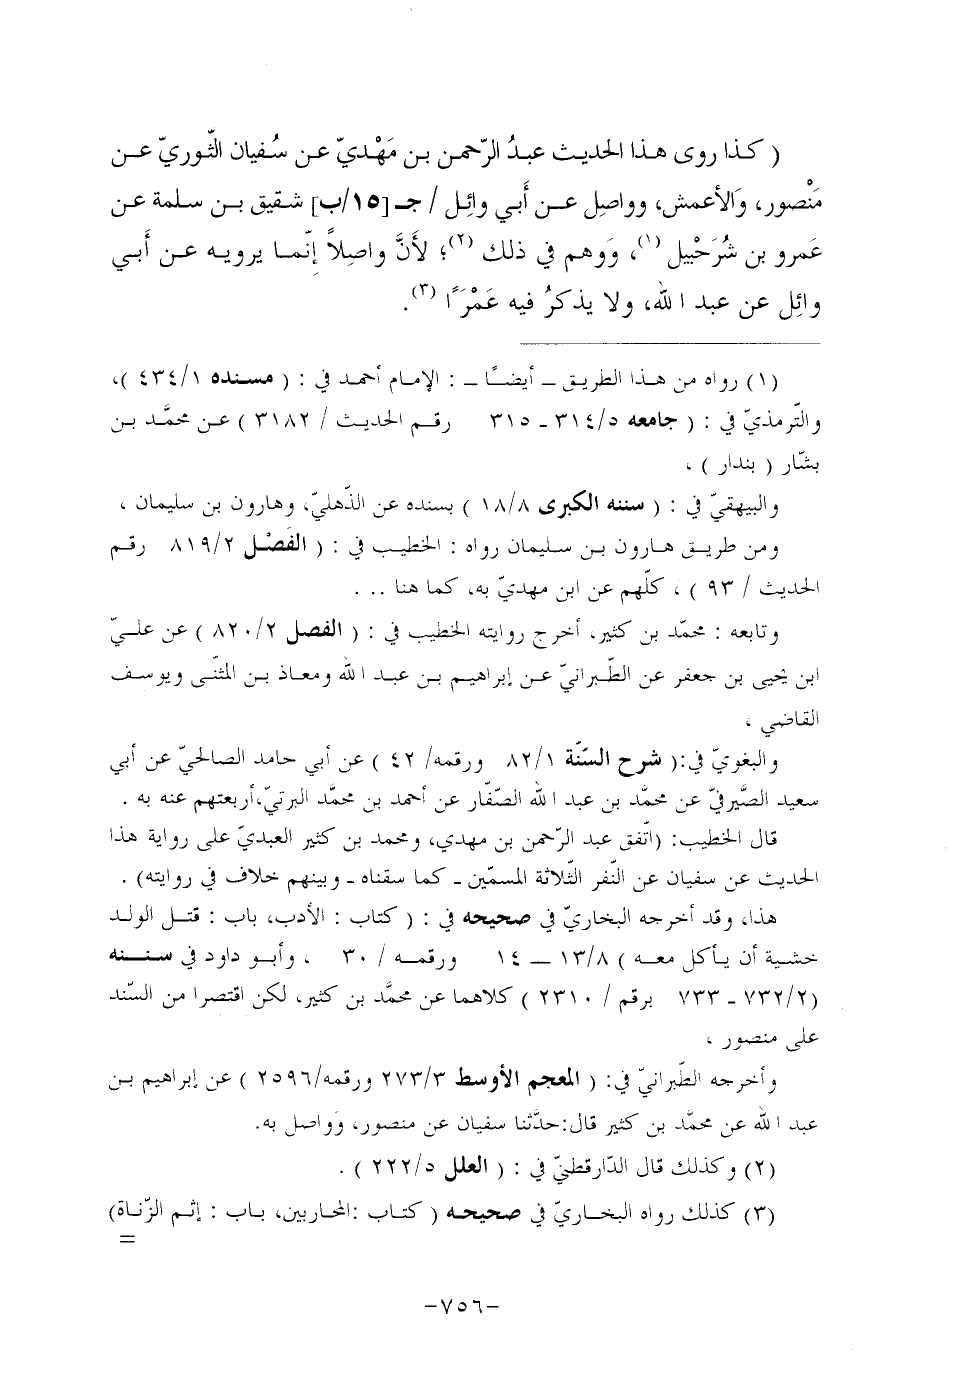 ( كذا روى هذا الحديث عبدُ الرّحمن بن مَهْديّ عن سُفيان الثّوريّ عن
مَنْصور، وَالأعمش، وواصِل عن أَبي وائِل / جـ [١٥/ب] شقيق بن سلمة عن
عَمرو بن شُرَحْبيل (١)، وَوهم في ذلك (٢)؛ لأنَّ واصِلاً إنّما يرويه عن أَبي
وائِل عن عبد الله، ولا يذكرُ فيه عَمْرًا (٣).
(١) رواه من هذا الطريق ـ أيضًا ـ : الإمام أحمد في : ( مسنده ٤٣٤/١ )،
والتّرمذيّ في : ( جامعه ٣١٤/٥ ـ ٣١٥ رقم الحديث / ٣١٨٢ ) عن محمَّد بن
بشّار ( بندار ) ،
والبيهقيّ في : ( سننه الكبرى ١٨/٨ ) بسنده عن الذّهليّ، وهارون بن سليمان ،
ومن طريق هارون بن سليمان رواه : الخطيب في : ( الفَصْل ٨١٩/٢ رقم
الحديث / ٩٣ ) ، كلّهم عن ابن مهديّ به، كما هنا .. .
وتابعه : محمّد بن كثير، أخرج روايته الخطيب في : ( الفصل ٨٢٠/٢ ) عن عليّ
ابن يحيى بن جعفر عن الطّبرانيّ عن إبراهيم بن عبد الله ومعاذ بن المثنّى ويوسف
القاضي ،
والبغويّ في:( شرح السّنّة ٨٢/١ ورقمه/ ٤٢ ) عن أبي حامد الصالحيّ عن أبي
سعيد الصَّيرفيّ عن محمَّد بن عبد الله الصّفّار عن أحمد بن محمَّد البرتيّ،أربعتهم عنه به .
قال الخطيب: (اتّفق عبد الرّحمن بن مهدي، ومحمد بن كثير العبديّ على رواية هذا
الحديث عن سفيان عن النّفر الثّلاثة المسمّين ـ كما سقناه ـ وبينهم خلاف في روايته) .
هذا، وقد أخرجه البخاريّ في صحيحه في : ( كتاب : الأدب، باب : قتل الولد
خشية أن يأكل معه ) ١٣/٨ ــ ١٤ ورقمه / ٣٠ ، وأبو داود في سننه
(٧٣٢/٢ ـ ٧٣٣ برقم / ٢٣١٠ ) كلاهما عن محمَّد بن كثير، لكن اقتصرا من السّند
على منصور ،
وأخرجه الطّبرانيّ في: ( المعجم الأوسط ٢٧٣/٣ ورقمه/٢٥٩٦ ) عن إبراهيم بن
عبد الله عن محمَّد بن كثير قال:حدَّثنا سفيان عن منصور، وَواصل به.
(٢) وكذلك قال الدّارقطنيّ في : ( العلل ٢٢٢/٥ ) .
(٣) كذلك رواه البخاريّ في صحيحه ( كتاب :المحاربين، باب : إثم الزّناة)
=
-٧٥٦-